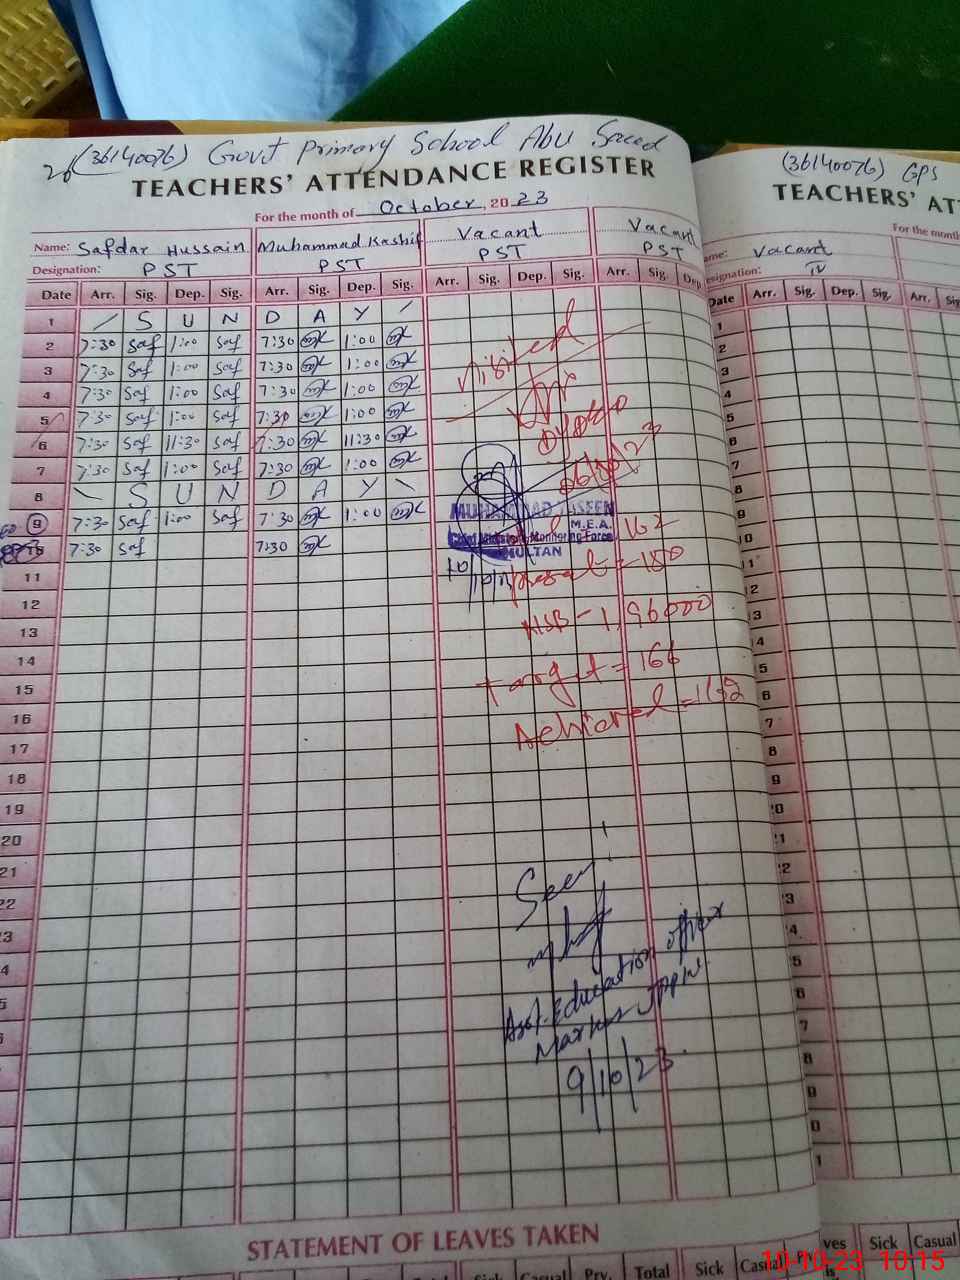 (36140076) Govt Primary School Abu Saeed
TEACHERS' ATTENDANCE REGISTER
For the month of October, 2023
Name: Safdar Hussain Muhammad Kashif Vacant Vacant
Designation: PST PST PST PST
Date Arr. Sig. Dep. Sig. Arr. Sig. Dep. Sig. Arr. Sig. Dep. Sig. Arr. Sig. Dep.
1 / S U N D A Y /
2 7:30 Saf 1:00 Saf 7:30 1:00
3 7:30 Saf 1:00 Saf 7:30 1:00
4 7:30 Saf 1:00 Saf 7:30 1:00
5 7:30 Saf 1:00 Saf 7:30 1:00
6 7:30 Saf 11:30 Saf 7:30 11:30
7 7:30 Saf 1:00 Saf 7:30 1:00
8 \ S U N D A Y \
9 7:30 Saf 1:00 Saf 7:30 1:00
10 7:30 Saf 7:30
11
12
13
14
15
16
17
18
19
20
21
22
23
Visited
MUHAMMAD
M.E.A.
Monitoring Force
MULTAN
162
Present = 150
NSB - 1,96000
Target = 166
Achieved = 162
Seen
Asst. Education officer
Markaz
9/10/23
STATEMENT OF LEAVES TAKEN
Sick Casual Prv. Total Sick Casual
(36140076) GPS
TEACHERS' AT
For the month
Name: Vacant
Designation: IV
Date Arr. Sig. Dep. Sig. Arr. Sig
1
2
3
4
5
6
7
8
9
10
11
12
13
14
15
16
17
18
19
20
21
22
23
24
25
26
27
28
29
30
31
Sick Casual
10-10-23 10:15